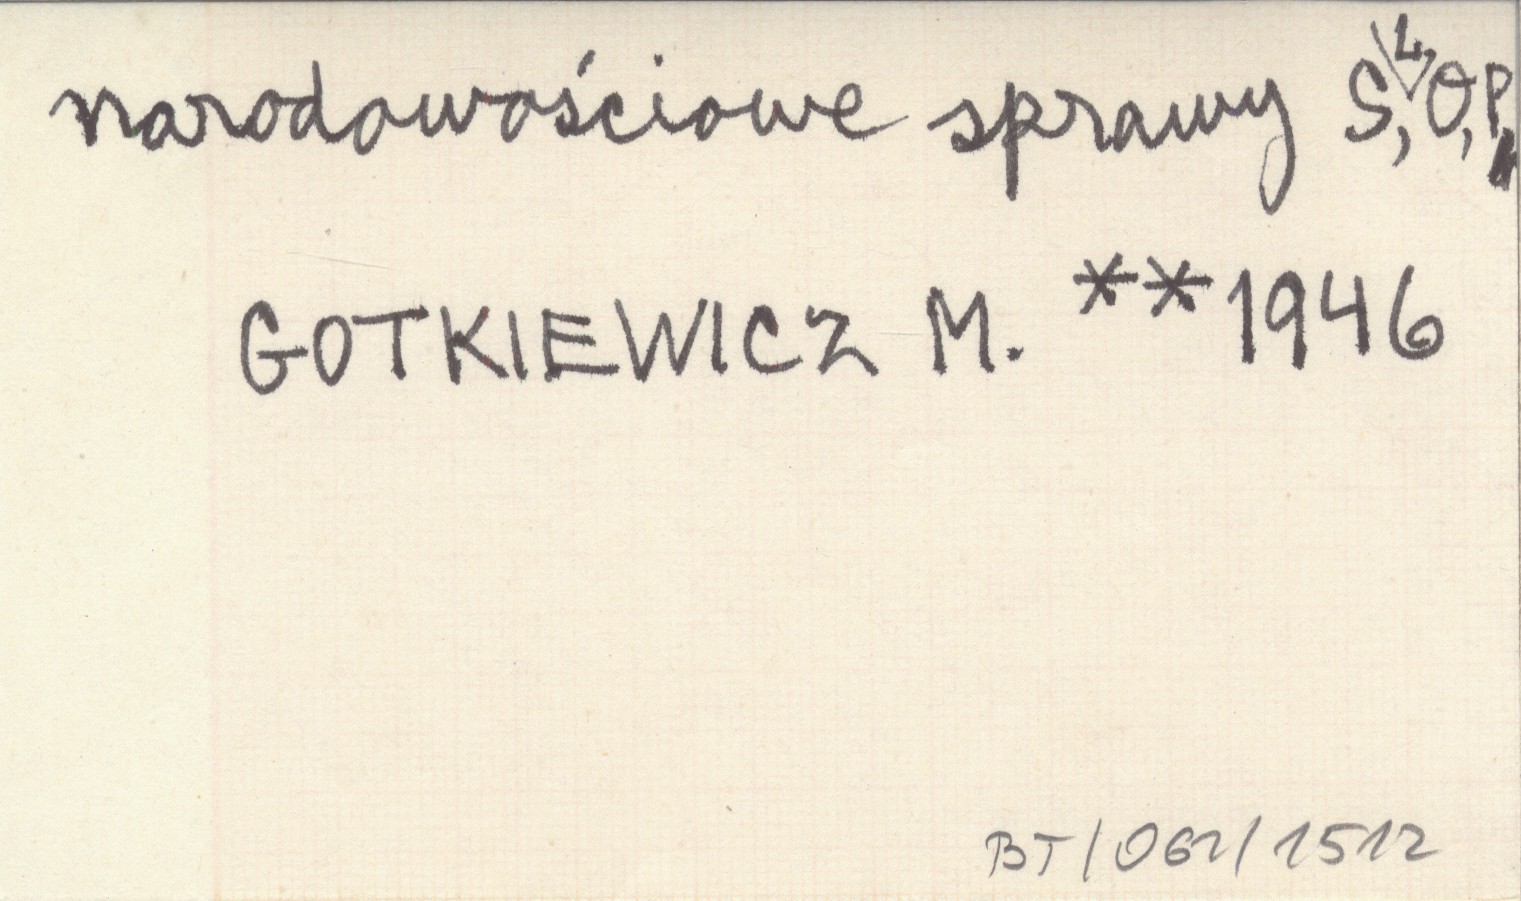 narodowościowe sprawy S, L, O, P,
GOTKIEWICZ M. **1946
BT/062/1512